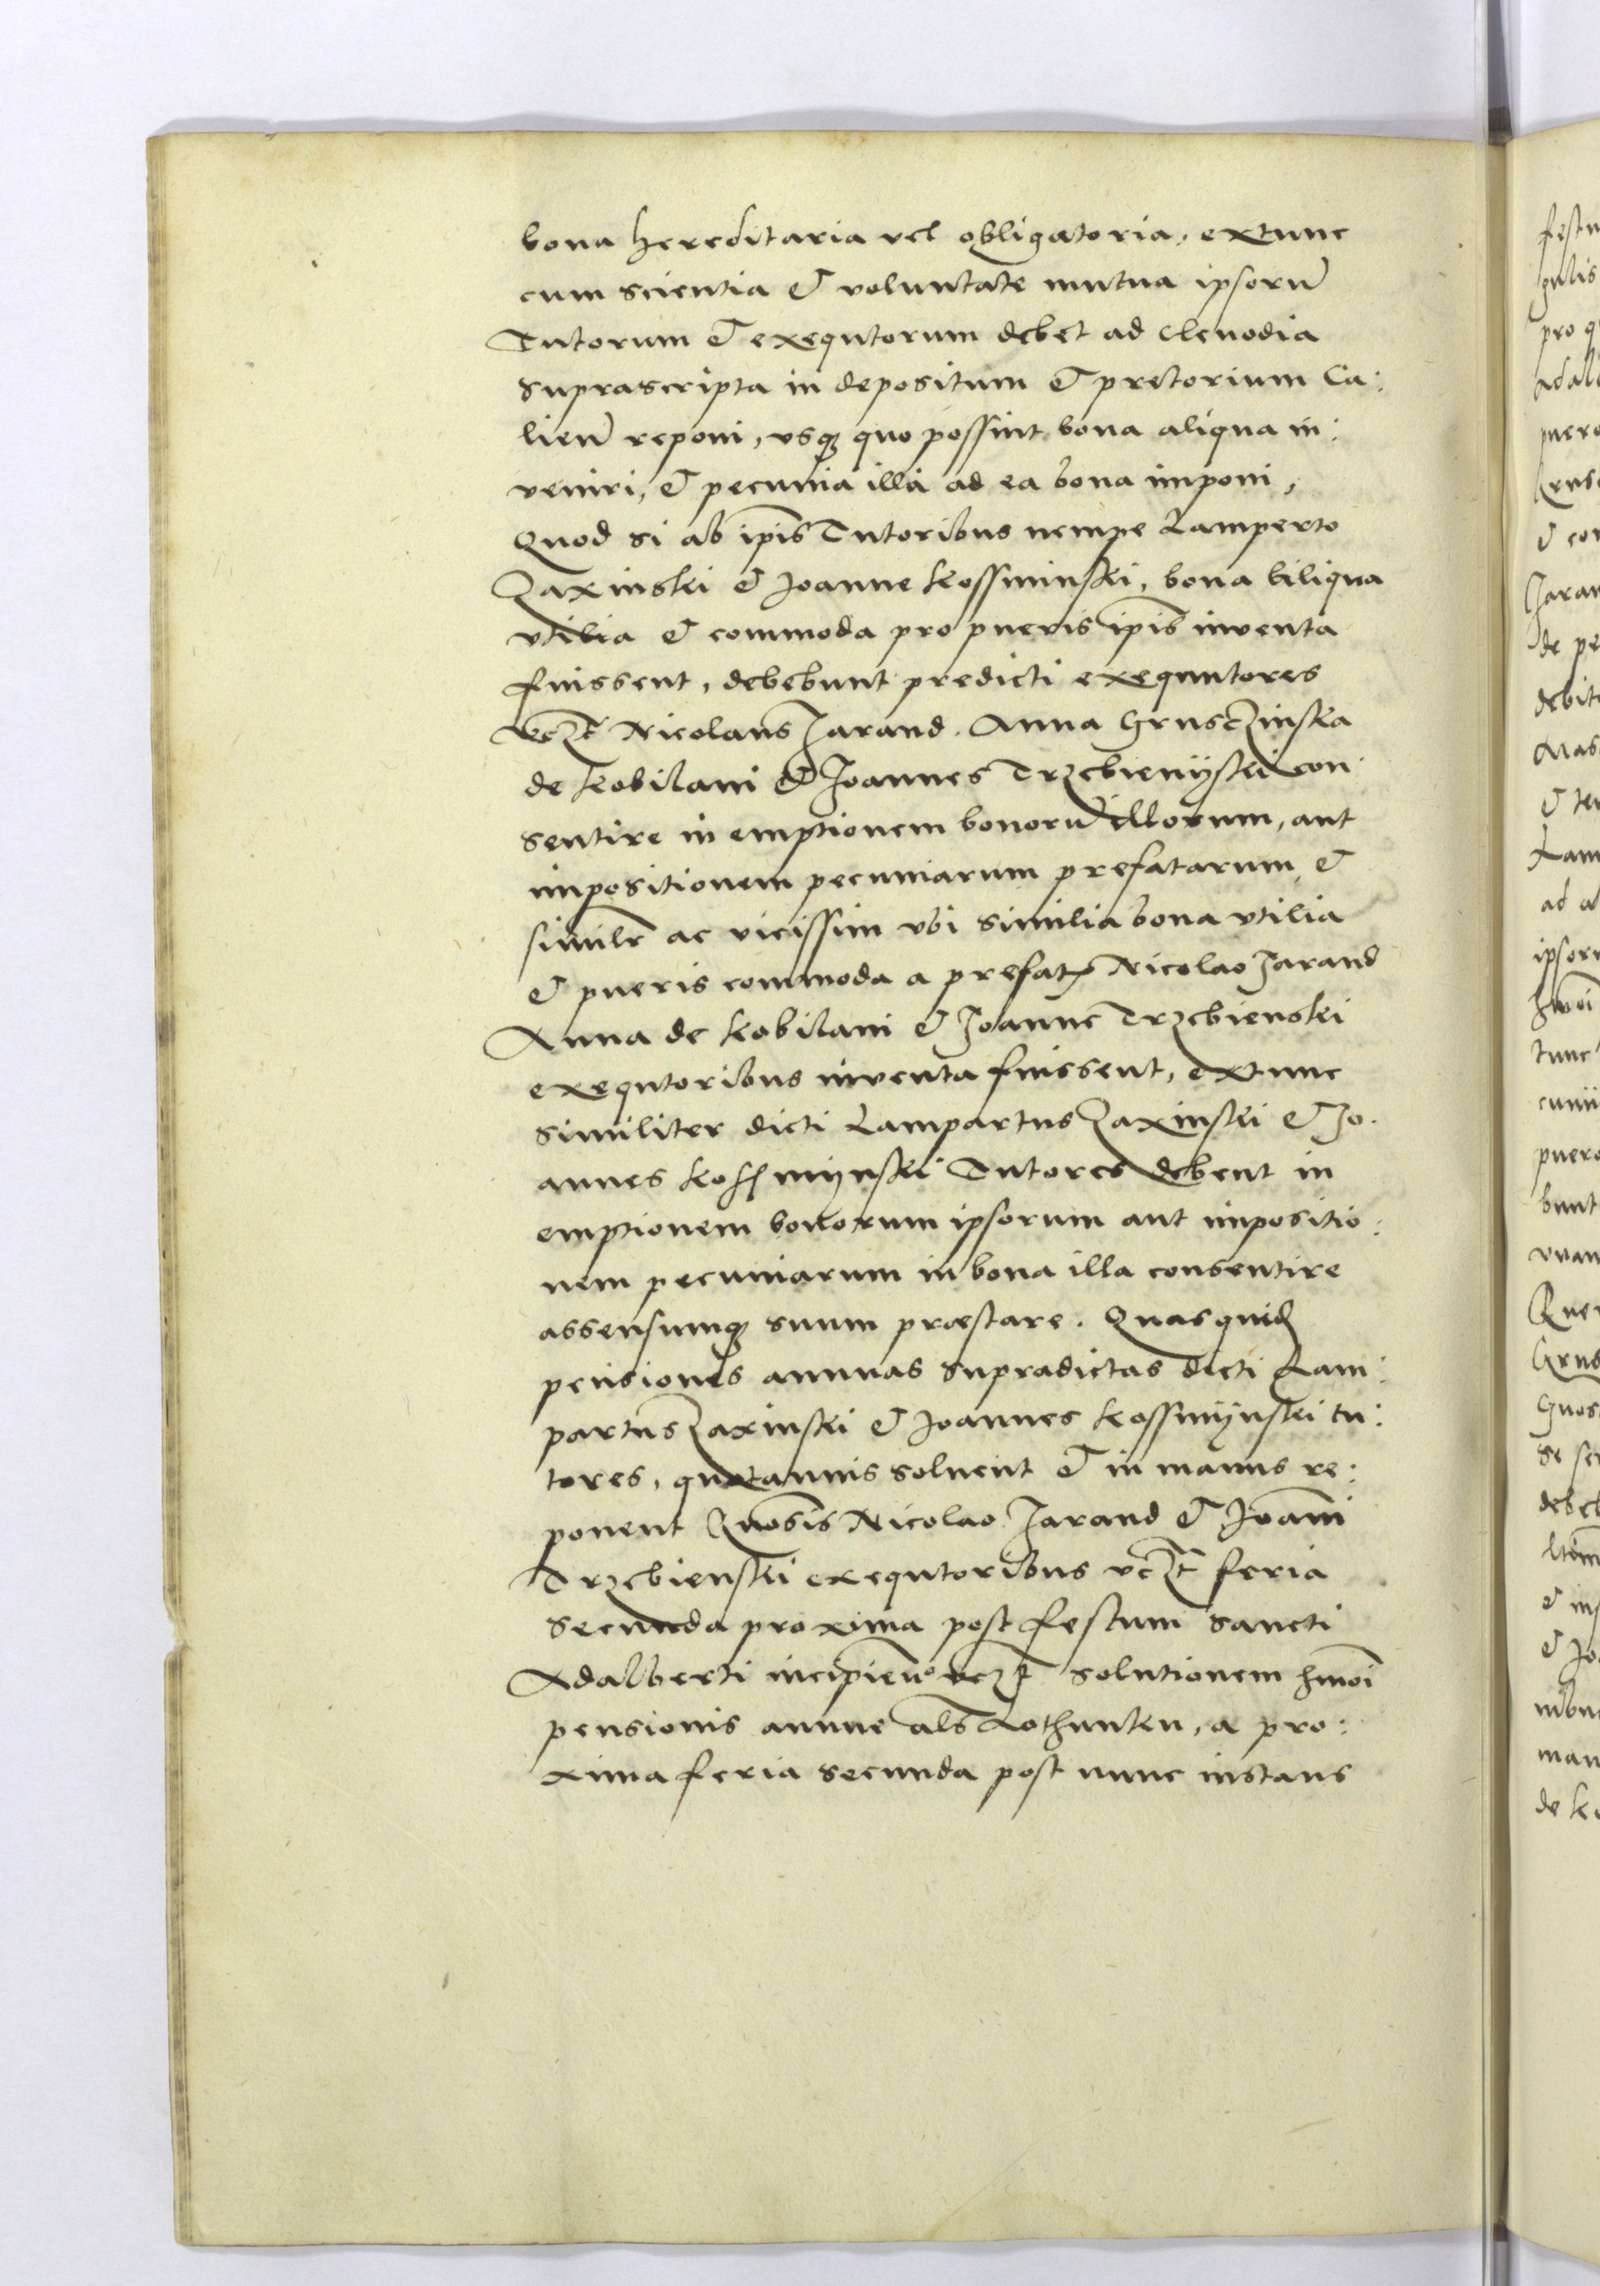 bona hereditaria vel obligatoria, extunc
cum scientia et voluntate mutua ipsorū
Tutorum et exequtorum debet ad clenodia
suprascripta in depositum et pretorium Ca:
lień reponi, vsq3 quo possint bona aliqua in:
veniri, et pecunia illa ad ea bona imponi,
Quod si ab ip̄is Tutoribus nempe Lamperto
Zaxinski et Joanne Kossminski, bona aliqua
vtilia et commoda pro pueris ip̄is inventa
fuissent, debebunt predicti exequutores
vcz̄t Nicolaus Jarand. Anna Gruscżinska
de Kobilani et Joannes Trzebienÿski con
sentire in emptionem bonorū illorum, aut
impositionem pecuniarum prefatarum, et
similr̄ ac vicissim vbi similia bona vtilia
et pueris commoda a prefato Nicolao Jarand
Anna de Kobilani et Joanne Trzebienski
exequtoribus inventa fuissent, extunc
similiter dicti Lampartus Zaxinski et Jo.
annes Kossmÿnski Tutores debent in
emptionem bonorum ipsorum aut impositio:
nem pecuniarum in bona illa consentire
assensumq3 suum præstare. Quas quid
pensiones annuas supradictas dicti Lam:
partus Zaxinski et Joannes Kossmÿnski tu:
tores, quotannis soluent et in manus re:
ponent Gn̄osis Nicolao Jarand et Joān̄i
Trzebienski exequtoribus vcz̄t feria
secunda proxima post festum sancti
Adalberti incipień vcz̄t solutionem hm̄oi
pensionis annue al̄s Lothunku, a pro:
xima feria secunda post nunc instans